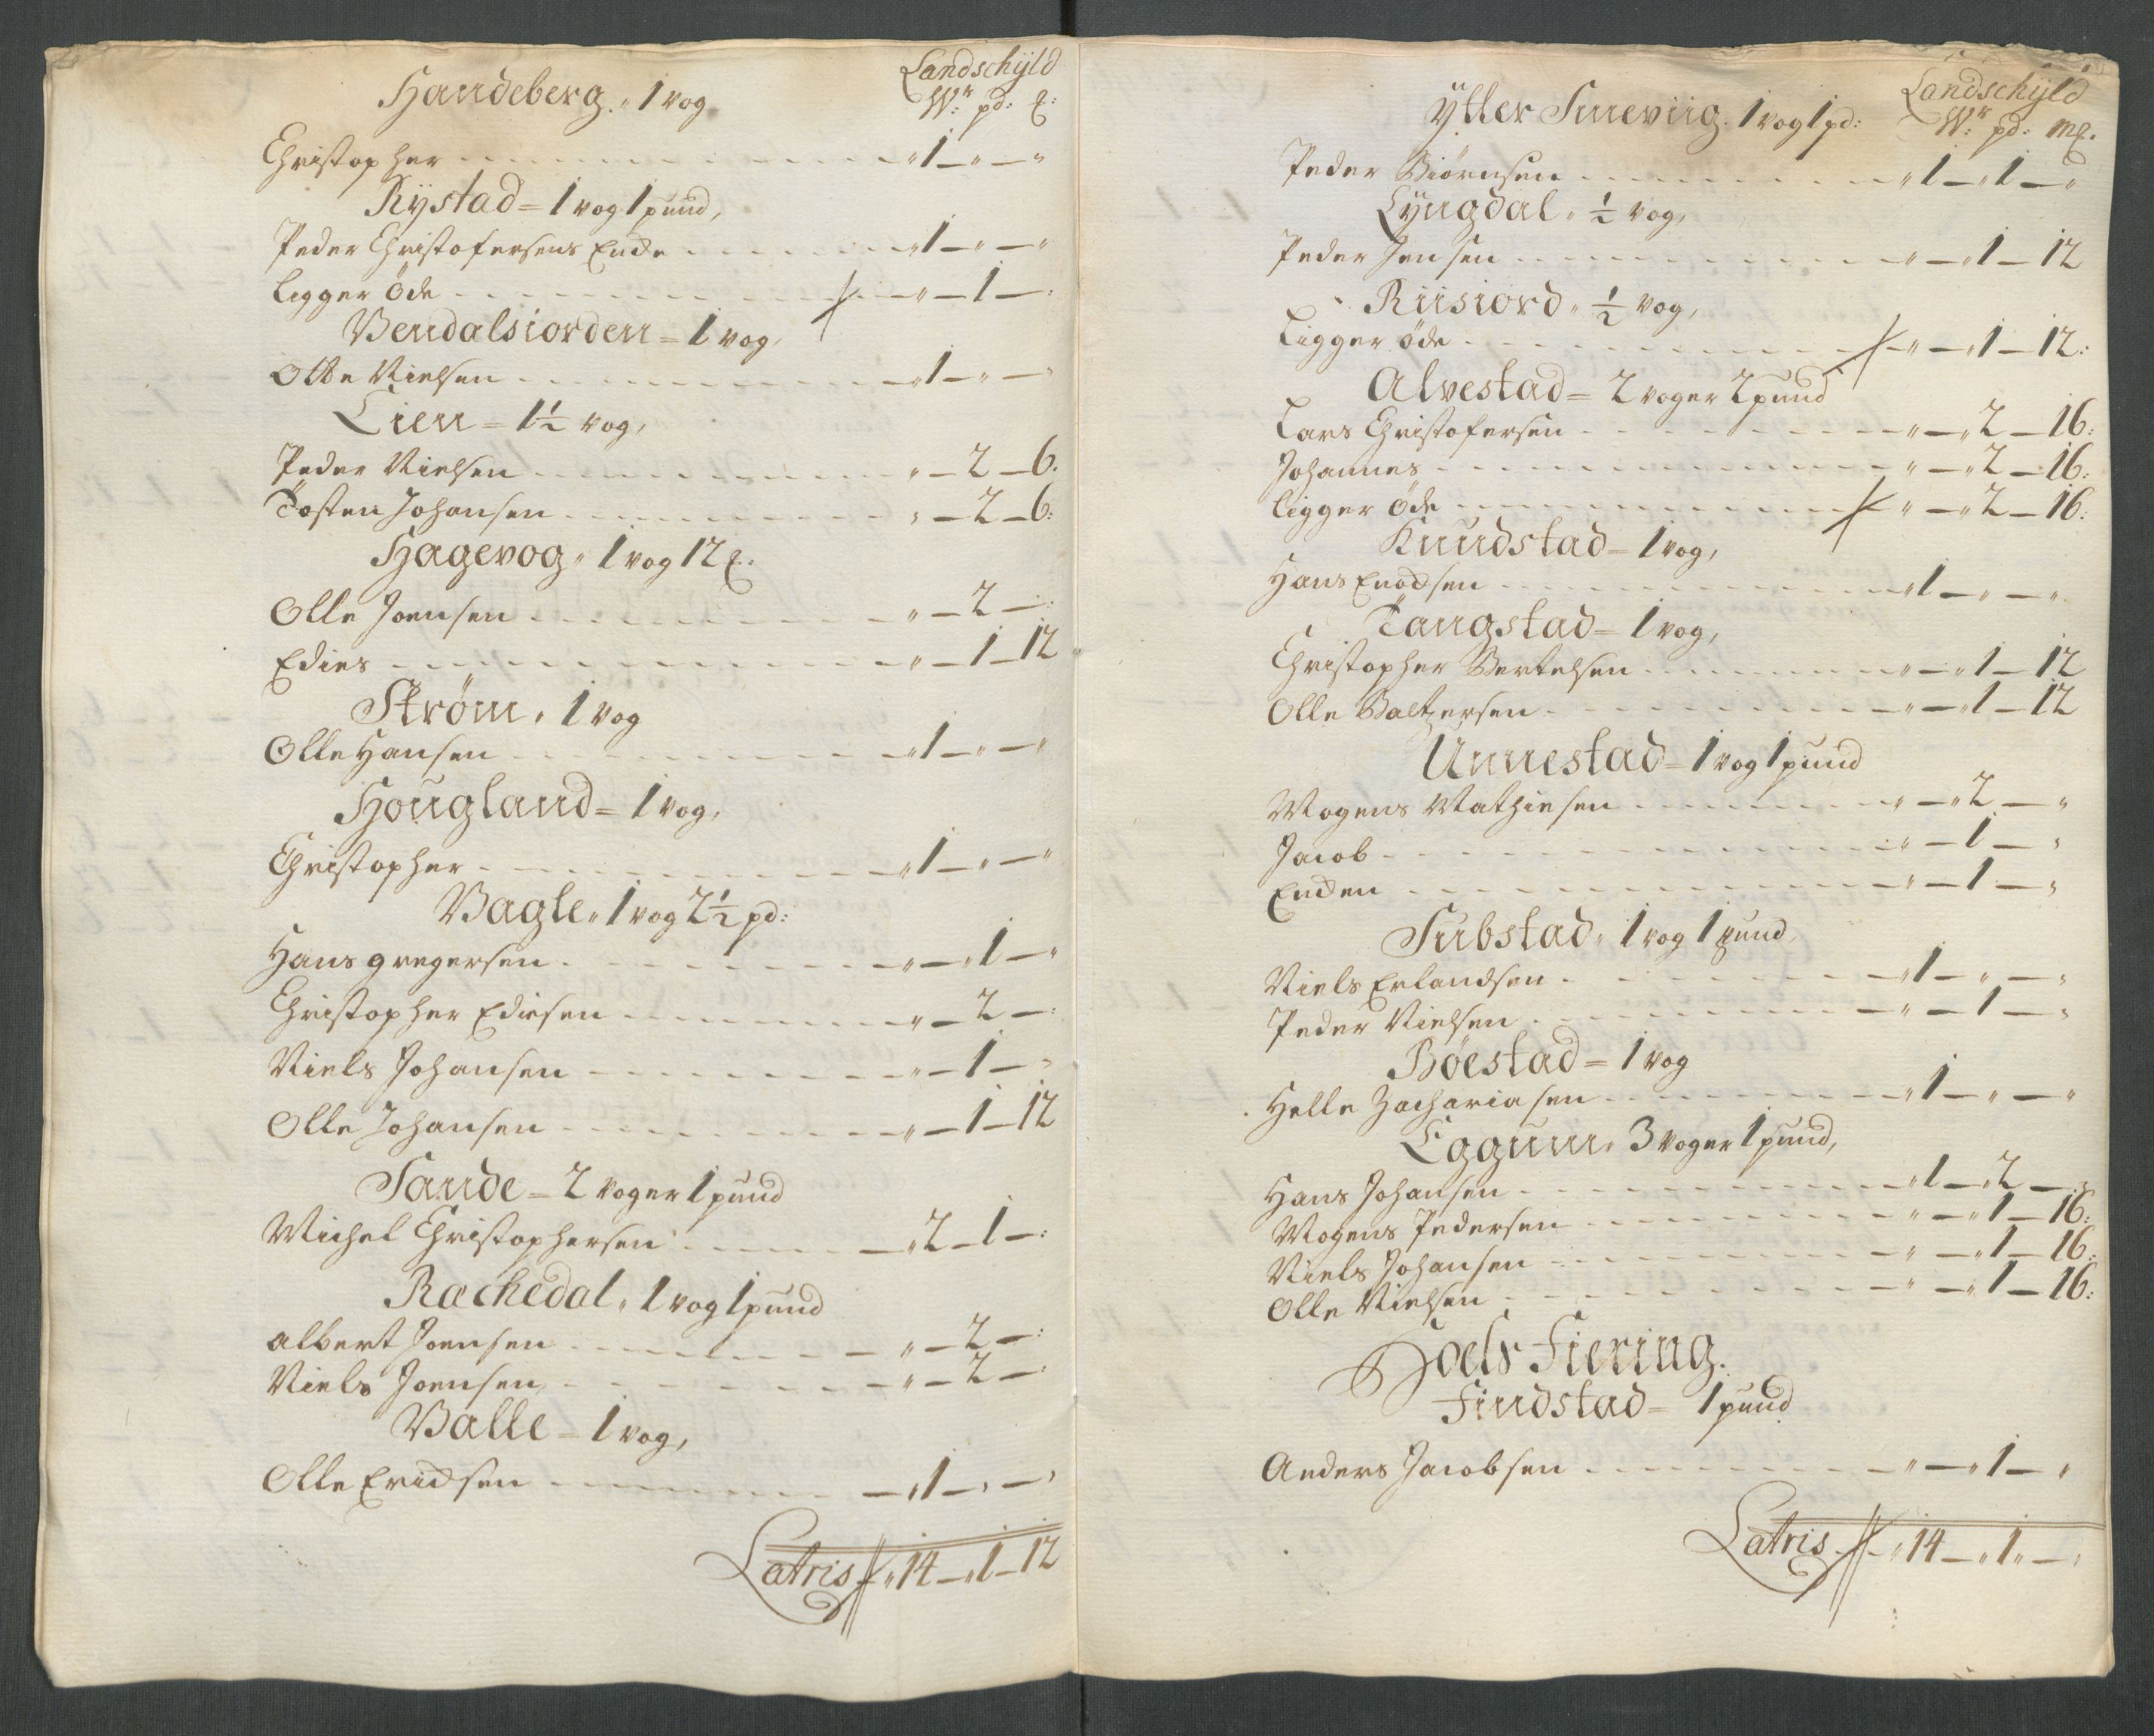 Handeberg. 1 vog
Landschÿld
W:r pd: ℔:
Christopher - - - " 1 — " — "
Rÿstad = 1 vog 1 pund,
Peder Christofersens Encke - - - " 1 — " — "
Ligger øde - - - " — 1 — :
Vendalsiorden = 1 vog,
Otte Nielsen - - - " 1 — " — "
Lien = 1½ vog,
Peder Nielsen - - - " — 2 — 6.
Tosten Johansen - - - " — 2 — 6:
Hagevog " 1 vog 12 ℔:
Olle Joensen - - - " — 2 — :
Edies - - - " — 1 — 12
Strøm " 1 vog
Olle Hansen - - - " 1 — " — "
Hougland = 1 vog,
Christopher - - - " 1 — " — "
Vagle " 1 vog 2½ pd:
Hans gregersen - - - " — " 1 — "
Christopher Ediesen - - - " — 2 — :
Niels Johansen - - - " — 1 — "
Olle Johansen - - - " — 1 — 12
Sande = 2 voger 1 pund
Michel Christophersen - - - " 2 — 1 — :
Rachedal " 1 vog 1 pund
albert Joensen - - - " — 2 — :
Niels Joensen - - - " — 2 — :
Valle = 1 vog,
Olle Ericksen - - - " 1 — " — "
Latris " 14 — " 1 — 12
Ÿtter Sneviig. 1 vog 1 pd:
Landschÿld
W:r pd: m℔.
Peder Biørnsen - - - " 1 — " 1 — "
Lÿngdal " ½ vog,
Peder Jensen - - - " — " 1 — 12
Riisiord " ½ vog,
Ligger øde - - - " — " 1 — 12:
Alvestad = 2 voger 2 pund
Lars Christofersen - - - " — " 2 — 16:
Johannes - - - " — " 2 — 16:
Ligger øde - - - " — " 2 — 16:
Knudstad = 1 vog,
Hans Enocksen - - - " 1 — " — "
Tangstad = 1 vog,
Christopher Bertelsen - - - " — " 1 — 12
Olle Baltzersen - - - " — " 1 — 12
Unnestad = 1 vog 1 pund
Mogens Mathiesen - - - " — " 2 — "
Jacob - - - " — 1 — "
Encken - - - " — 1 — "
Substad " 1 vog 1 pund
Niels Erlandsen - - - " 1 — " — "
Peder Nielsen - - - " — 1 — "
Bøestad = 1 vog
Helle Zachariasen - - - " 1 — " — "
Eggum " 3 voger 1 pund,
Hans Johansen - - - " 1 — " 2 — "
Mogens Pedersen - - - " — " 1 — 16:
Niels Johansen - - - " — " 1 — 16:
Olle Nielsen - - - " — " 1 — 16:
Hoels Fiering.
Findstad = 1 pund
Anders Jacobsen - - - " — " 1 — "
Latris " 14 — " 1 " — "